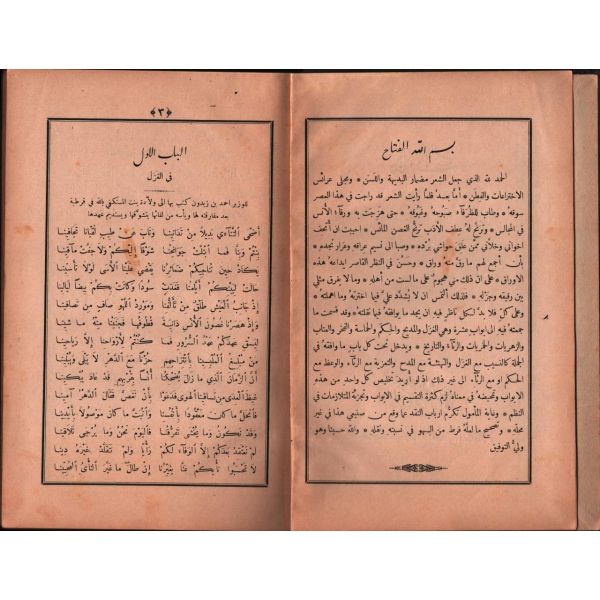 بسم الله الفتاح
الحمد لله الذي جعل الشعر مضمار البديهة واللسن * ومجلى عرائس
الاختراعات والفطن * أما بعد فلما رأيت الشعر قد راجت في هذا العصر
سوقه * وطاب للظرفاء صبوحه وغبوقه * حتى هزجت به ورقاء الأنس
في المجالس * وترنح له عطف الأدب ترنح الغصن المائس * احببت ان أتحف
اخواني وخلاني ممن علق حواشي برده * وصبا الى نسيم عرافه وعرار نجده *
بأن أجمع لهم ما رق منه وراق * وحسن في النظر القاصر ايداعه هذه
الاوراق * على ان ذلك مني هجوم على ما لست من أهله * وما لا يفرق مثلي
بين رقيقه وجزله * فلذلك ألتمس ان لا يشدد علي فيما اخترته وما اهملته *
وعلى كل فلا بد لكل ناظر فيه ان يجد ما يوافقه فيما قلته * وقد قسمت ما
جمعته فيه الى ابواب عشرة وهي الغزل والمديح والحكم والحماسة والفخر والعتاب
والزهريات والخمريات والرثاء والتاريخ * ويدخل تحت كل باب ما يوافقه في
الجملة كالنسيب مع الغزل والتهنئة مع المدح والتعزية مع الرثاء والوعظ مع
الحكم او مع الرثاء الى غير ذلك اذ لو أريد تخليص كل واحد من هذه
الابواب وتمحيضه في معناه لزم كثرة التقسيم في الابواب وتجزئة المتلازمات في
النظم * وغاية المأمول تكرم ارباب النقد عما وقع من صنيعي هذا في غير
محله * وتصحيح ما لعله فرط من السهو في نسبته ونقله * والله حسبنا وهو
ولي التوفيق
﴿٣﴾
الباب الاول
في الغزل
للوزير احمد بن زيدون كتب بها الى ولادة بنت المستكفي بالله في قرطبة
بعد مفارقته لها ويأسه من لقائها يتشوقها ويستديم عهدها
أَضْحَى التَّنَائِي بَدِيلًا مِنْ تَدَانِينَا وَنَابَ عَنْ طِيبِ لُقْيَانَا تَجَافِينَا
بِنْتُمْ وَبِنَّا فَمَا ابْتَلَّتْ جَوَانِحُنَا شَوْقًا إِلَيْكُمْ وَلَا جَفَّتْ مَآقِينَا
يَكَادُ حِينَ تُنَاجِيكُمْ ضَمَائِرُنَا يَقْضِي عَلَيْنَا الْأَسَى لَوْلَا تَأَسِّينَا
حَالَتْ لِبُعْدِكُمُ أَيَّامُنَا فَغَدَتْ سُودًا وَكَانَتْ بِكُمْ بِيضًا لَيَالِينَا
إِذْ جَانِبُ الْعَيْشِ طَلْقٌ مِنْ تَأَلُّفِنَا وَمَوْرِدُ اللَّهْوِ صَافٍ مِنْ تَصَافِينَا
وَإِذْ هَصَرْنَا غُصُونَ الْأُنْسِ دَانِيَةً قُطُوفُهَا فَجَنَيْنَا مِنْهُ مَا شِينَا
لِيُسْقَ عَهْدُكُمُ عَهْدُ السُّرُورِ فَمَا كُنْتُمْ لِأَرْوَاحِنَا إِلَّا رَيَاحِينَا
مَنْ مُبْلِغُ الْمُلْبِسِينَا بِانْتِزَاحِهِمِ حُزْنًا مَعَ الدَّهْرِ لَا يَبْلَى وَيُبْلِينَا
أَنَّ الزَّمَانَ الَّذِي مَا زَالَ يُضْحِكُنَا أُنْسًا بِقُرْبِهِمِ قَدْ عَادَ يُبْكِينَا
غِيظَ الْعِدَى مِنْ تَسَاقِينَا الْهَوَى فَدَعَوْا بِأَنْ نَغَصَّ فَقَالَ الدَّهْرُ آمِينَا
فَانْحَلَّ مَا كَانَ مَعْقُودًا بِأَنْفُسِنَا وَانْبَتَّ مَا كَانَ مَوْصُولًا بِأَيْدِينَا
وَقَدْ نَكُونُ وَمَا يُخْشَى تَفَرُّقُنَا فَالْيَوْمَ نَحْنُ وَمَا يُرْجَى تَلَاقِينَا
لَمْ نَعْتَقِدْ بَعْدَكُمْ إِلَّا الْوَفَاءَ لَكُمْ رَأْيًا وَلَمْ نَتَقَلَّدْ غَيْرَهُ دِينَا
لَا تَحْسَبُوا نَأْيَكُمْ عَنَّا يُغَيِّرُنَا إِنْ طَالَ مَا غَيَّرَ النَّأْيُ الْمُحِبِّينَا